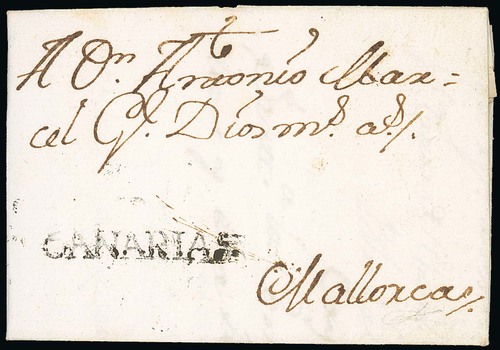 A Dn. Antonio Mar=
cel G. Dios ms. as.
CANARIAS
Mallorca